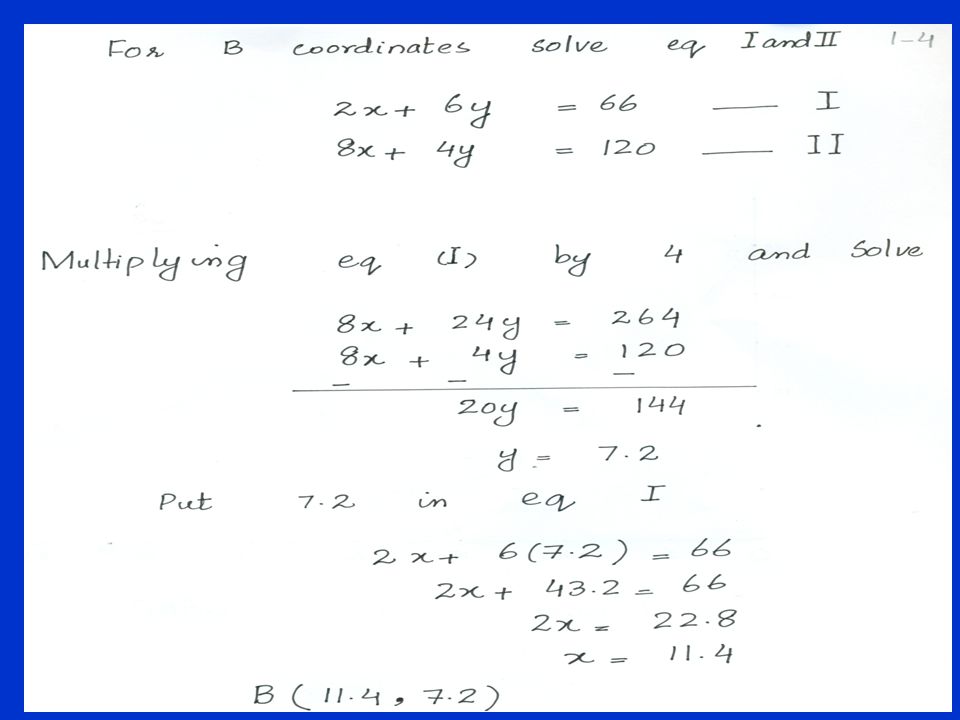 For B coordinates solve eq I and II 1-4
2x + 6y = 66 —— I
8x + 4y = 120 —— II
Multiplying eq (I) by 4 and Solve
8x + 24y = 264
8x + 4y = 120
– – –
20y = 144
y = 7.2
Put 7.2 in eq I
2x + 6(7.2) = 66
2x + 43.2 = 66
2x = 22.8
x = 11.4
B (11.4, 7.2)